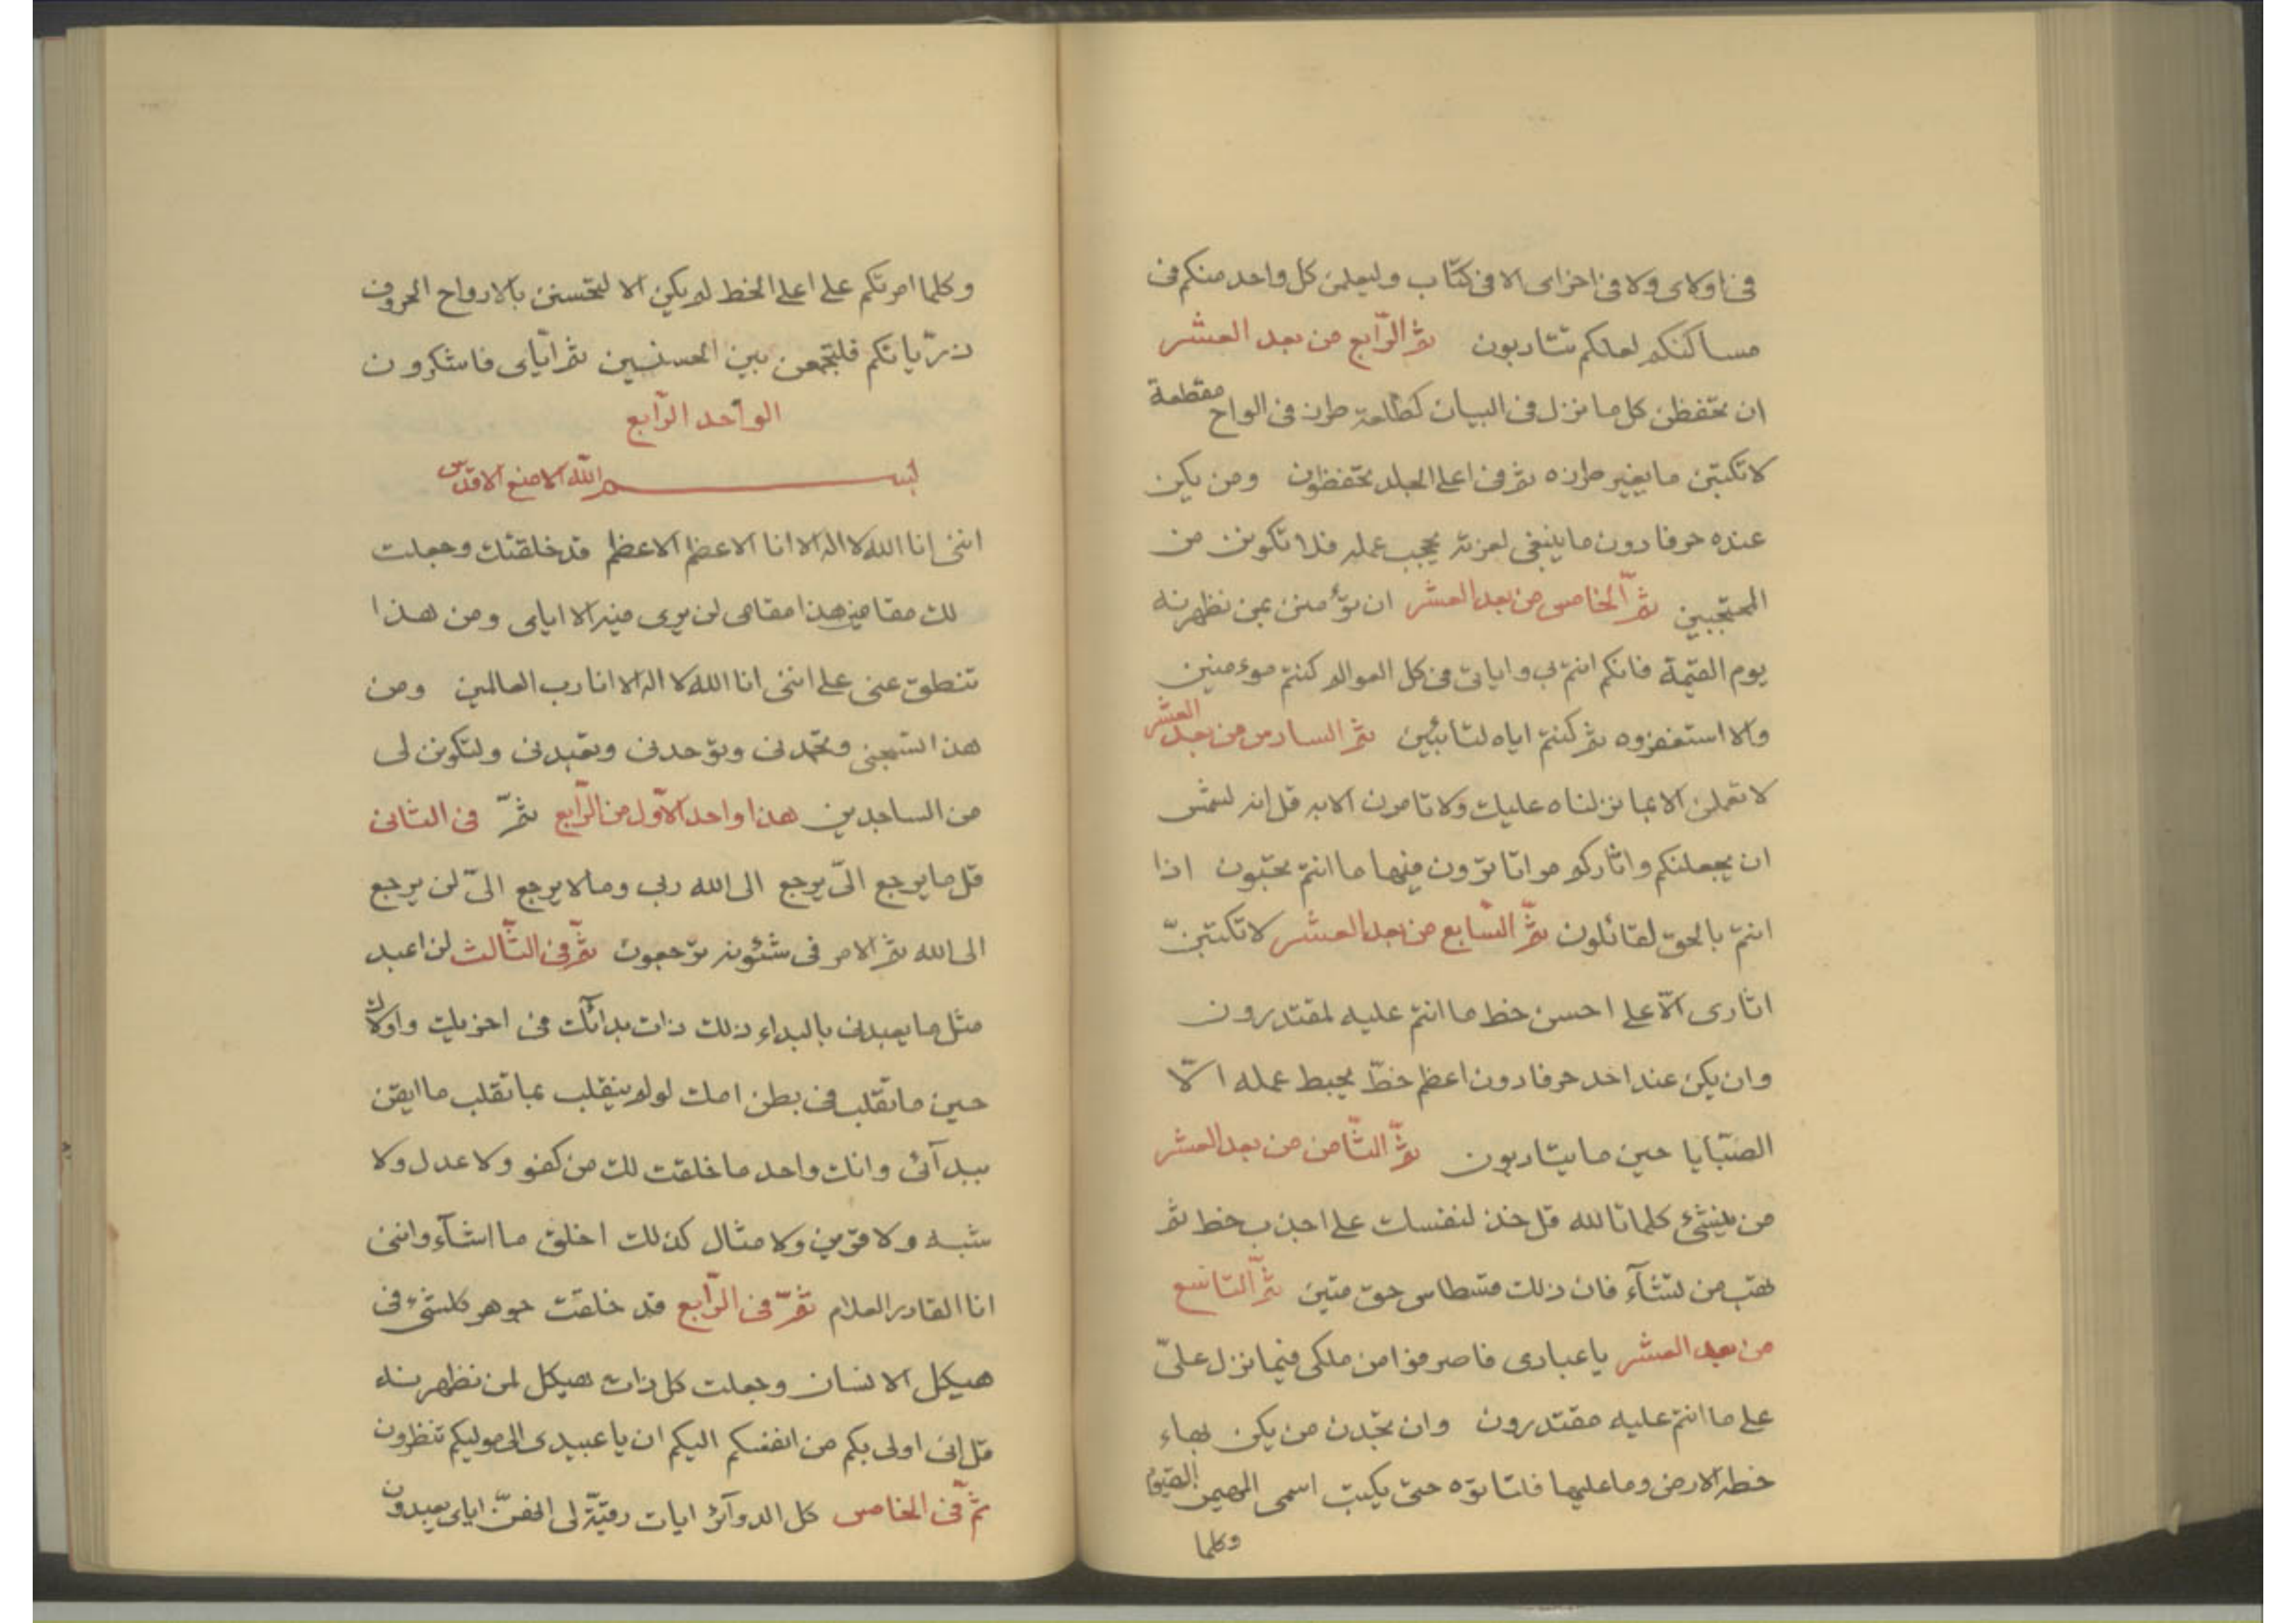 فی اولای ولا فی اخرای الا فی کتاب ولیعلمن کل واحد منکم فی
مساکنکم لعلکم تتادبون ثم الرّابع من بعد العشر
ان تحفظن کل ما نزل فی البیان کطلعة طرز فی الواح مقطعة
لا تکتبن ما یغیر طرزه ثم فی اعلی الجلد تحفظون ومن یکن
عنده حرفا دون ما ینبغی لعزته یحجب عمله فلا تکونن من
المحتجبین ثمّ الخامس من بعد العشر ان تؤمنن بمن نظهرنه
یوم القیمة فانکم انتم بی وایاتی فی کل العوالم کنتم موءمنین
والا استغفروه ثم کنتم ایاه لتائبین ثم السادس من بعد العشر
لا تعملن الا بما نزلناه علیک ولا تامرن الا به قل انه لشمس
ان یجعلنکم واثارکم مراتا ترون فیها ما انتم تحبّون اذا
انتم بالحق لقائلون ثمّ السّابع من بعد العشر لا تکتبنّ
اثاری الّا علی احسن خط ما انتم علیه لمقتدرون
وان یکن عند احد حرفا دون اعظم خطّ یحبط عمله الّا
الصّبایا حین ما یتادبون ثمّ الثّامن من بعد العشر
من ینشئ کلمات الله قل خذ لنفسک علی اجذب خط ثم
تهب من تشآء فان ذلک قسطاس حق متین ثمّ التاسع
من بعد العشر یا عبادی فاصرفوا من ملکی فیما نزل علیّ
علی ما انتم علیه مقتدرون وان تجدن من یکن بهاء
خطه الارض وما علیها فلتاتوه حتی یکتب اسمی المهیمن القیوم
وکلما
وکلما امرتکم علی اعلی الخط لم یکن الا لتحسنن بالارواح الحروف
ذرّیاتکم فلتجمعن بین الحسنیین ثم ایّای فاشکرون
الواحد الرّابع
بسم الله الامنع الاقدس
اننی انا الله لا اله الا انا الاعظم الاعظم قد خلقتک وجعلت
لک مقامین هذا مقامی لن یری فیه الا ایای ومن هذا
تنطق عنی علی اننی انا الله لا اله الا انا رب العالمین ومن
هذا تسبحنی وتحمدنی وتوحدنی وتعبدنی ولتکونن لی
من الساجدین هذا واحد الاوّل من الرّابع ثمّ فی الثانی
قل ما یرجع الیّ یرجع الی الله ربی وما لا یرجع الیّ لن یرجع
الی الله ثم الامر فی شئونه ترجعون ثمّ فی الثّالث لن اعبد
مثل ما یعبدنی بالبداء ذلک ذات بدائک فی اخریک واولاک
حین ما تقلب فی بطن امک لو لم ینقلب بما تقلب ما ایقن
ببدآئی وانک واحد ما خلقت لک من کفو ولا عدل ولا
شبه ولا قرین ولا مثال کذلک اخلق ما اشآء واننی
انا القادر العلام ثمّ فی الرّابع قد خلقت جوهر کلشیء فی
هیکل الانسان وجعلت کل ذات هیکل لمن نظهرنه
قل انی اولی بکم من انفسکم الیکم ان یا عبیدی الی مولیکم تنظرون
ثمّ فی الخامس کل الدوآئر ایات رقیّة لی ایای یعبدون